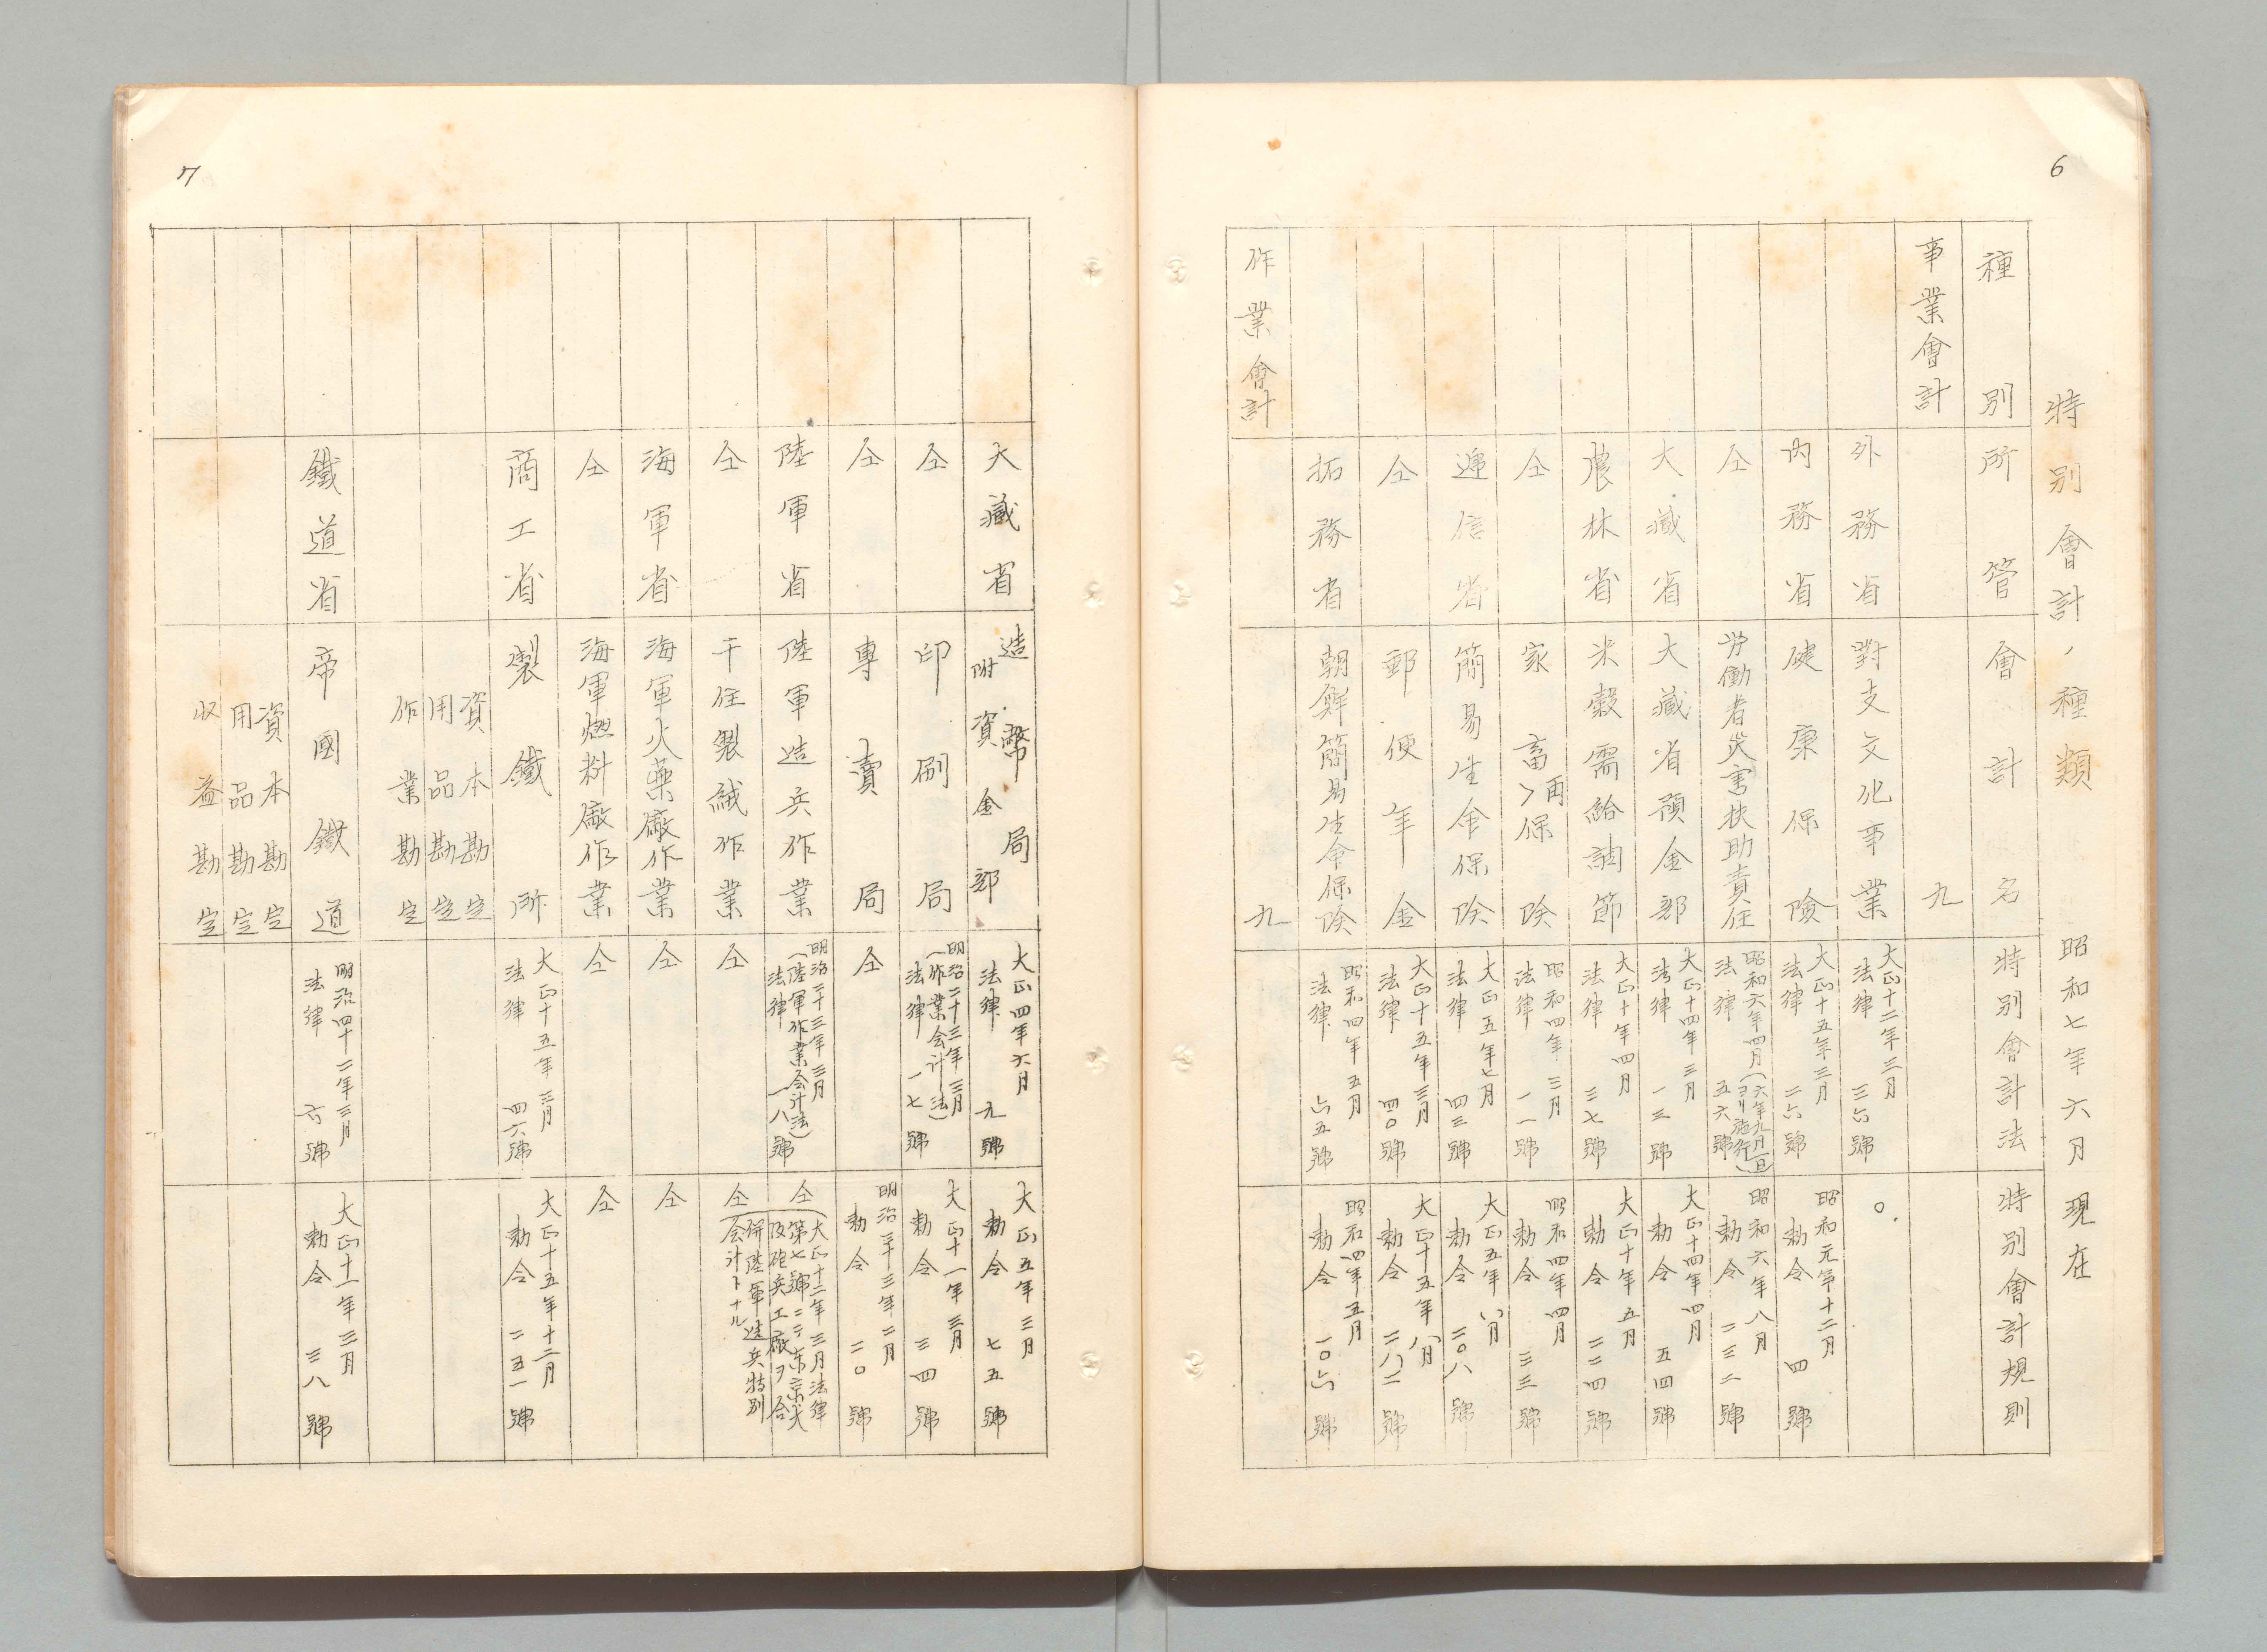 6
特別會計ノ種類 昭和七年六月現在
種別 所管 會計名 特別會計法 特別會計規則
事業會計 九
外務省 對支文化事業 大正十二年三月 法律 三六號 〇
內務省 健康保險 大正十五年三月 法律 二六號 昭和元年十二月 勅令 四號
仝 労働者災害扶助責任 昭和六年四月(六年九月一日ヨリ施行) 法律 五六號 昭和六年八月 勅令 二三二號
大藏省 大藏省預金部 大正十四年三月 法律 一三號 大正十四年四月 勅令 五四號
農林省 米穀需給調節 大正十年四月 法律 三七號 大正十年五月 勅令 二二四號
仝 家畜再保険 昭和四年三月 法律 一一號 昭和四年四月 勅令 三三號
逓信省 簡易生命保険 大正五年七月 法律 四三號 大正五年八月 勅令 二〇八號
仝 郵便年金 大正十五年三月 法律 四〇號 大正十五年八月 勅令 二八二號
拓務省 朝鮮簡易生命保険 昭和四年五月 法律 六五號 昭和四年五月 勅令 一〇六號
作業會計 九
7
大藏省 造幣局 附資金部 大正四年六月 法律 九號 大正五年三月 勅令 七五號
仝 印刷局 明治二十三年三月 (作業会計法) 法律 一七號 大正十一年三月 勅令 三四號
仝 專賣局 仝 明治三十三年二月 勅令 二〇號
陸軍省 陸軍造兵作業 明治二十三年三月 (陸軍作業会計法) 法律 一八號 仝
仝 千住製絨作業 仝 仝
大正十二年三月法律
第七號ニテ东京大
阪砲兵工廠ヲ合
併陸軍造兵特別
会計トナル
海軍省 海軍火薬廠作業 仝 仝
仝 海軍燃料廠作業 仝 仝
商工省 製鐵所 大正十五年三月 法律 四六號 大正十五年十二月 勅令 二五一號
資本勘定
用品勘定
作業勘定
鐵道省 帝國鐵道 明治四十二年三月 法律 六號 大正十一年三月 勅令 三八號
資本勘定
用品勘定
収益勘定